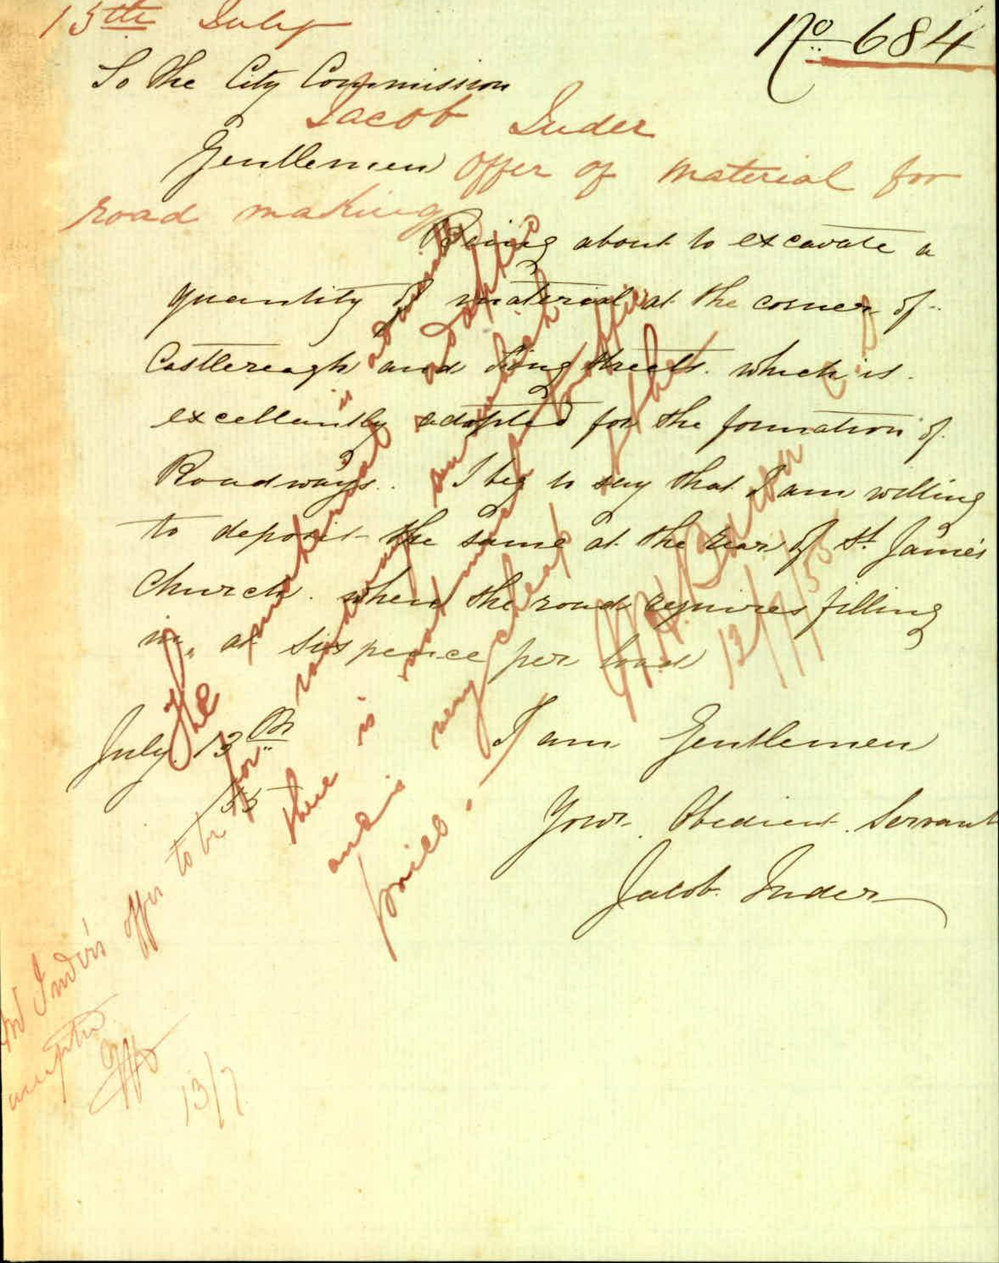 13th July
No 684
To the City Commission
Jacob Inder
Gentlemen
Offer of material for
road making
Being about to excavate a
quantity of material at the corner of
Castlereagh and King Streets. which is
excellently adapted for the formation of
Roadways. I beg to say that I am willing
to deposit the same at the rear of St. James
Church. where the road requires filling
in, at sixpence per load
July 13th
/55
I am Gentlemen
Your Obedient Servant
Jacob Inder
The material is admirably adapted
for roadways and which
there is not much for offer
and is very cheap at the
price.
12/7/55
Mr Inder's offer to be
accepted
13/7